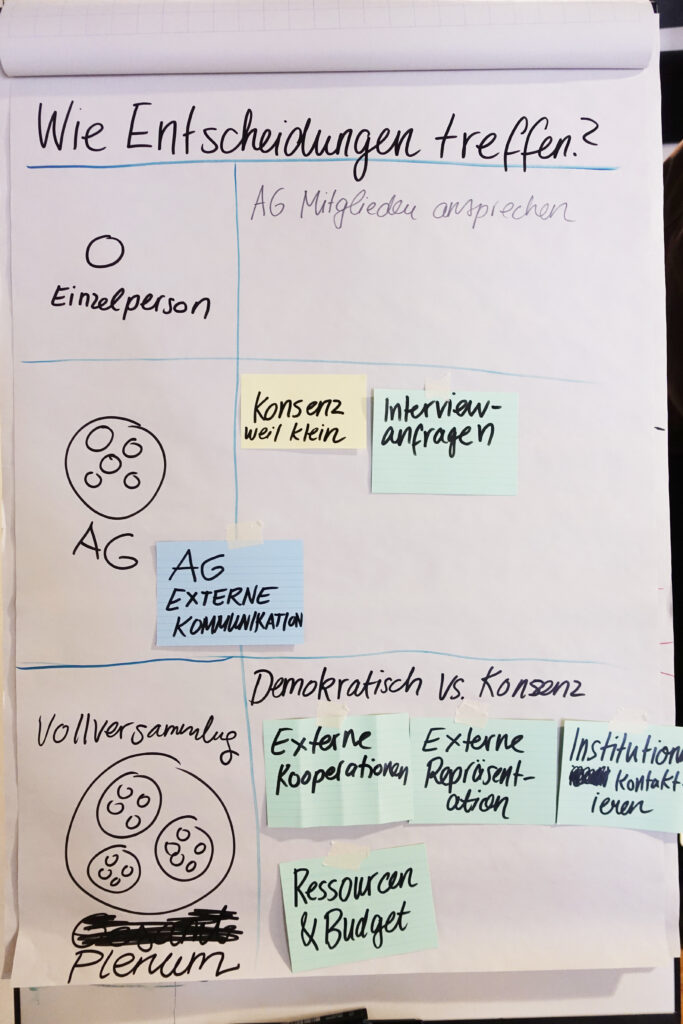 Wie Entscheidungen treffen?
AG Mitglieder ansprechen
Einzelperson
Konsenz
weil klein
Interview-
anfragen
AG
AG
EXTERNE
KOMMUNIKATION
Demokratisch vs. Konsenz
Vollversammlug
Externe
Kooperationen
Externe
Repräsent-
ation
Institution
Kontakt-
ieren
Ressourcen
& Budget
Plenum